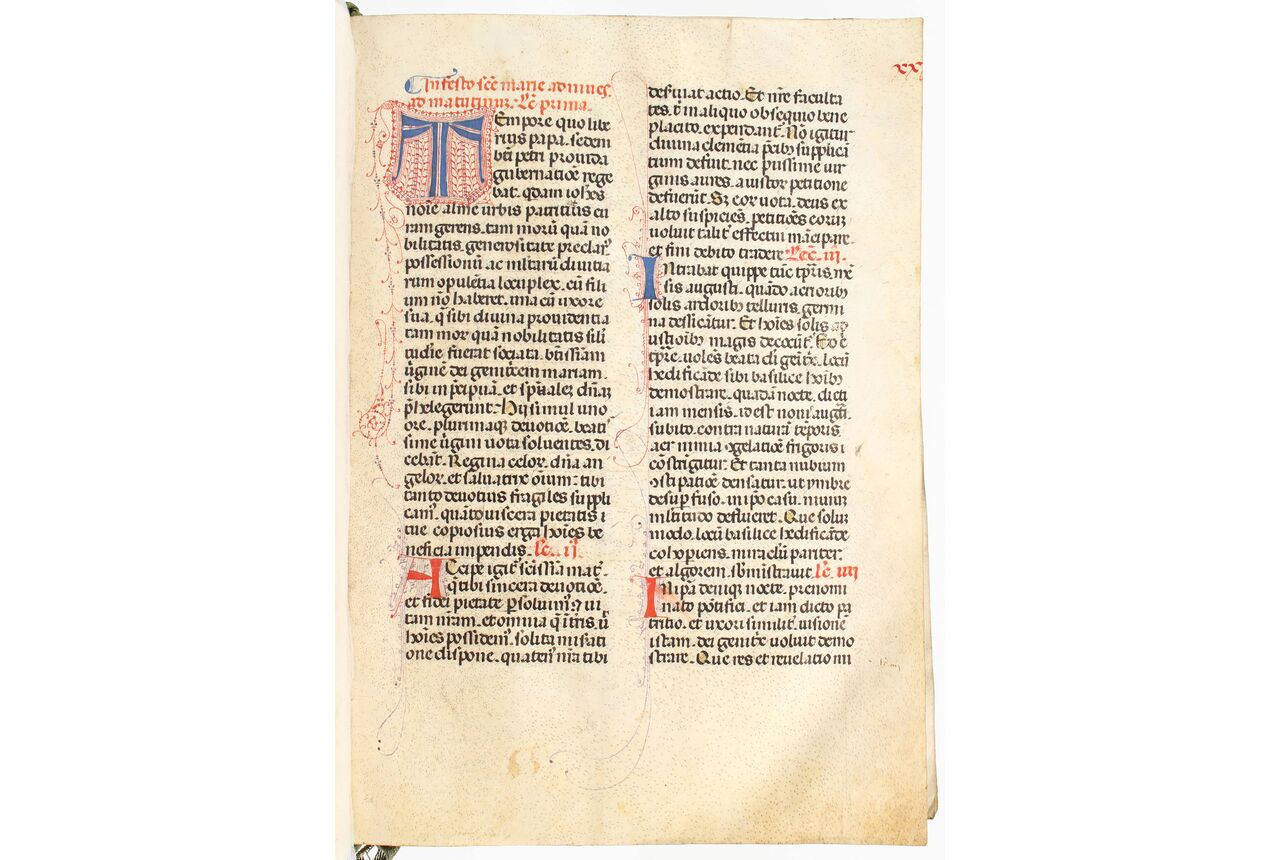 xx
In festo scē marie ad nives
ad matutinum. Lc̄ prima.
Tempore quo libe
rius papa. sedem
bt̄i petri provida
gubernatiōe rege
bat. qdam ioh̄es
noīe alme urbis patritius cu
ram gerens. tam morū quā no
bilitatis generositate preclarꝰ
possessionū ac militarū divitia
rum opulētia locuplex. cū fili
um nō haberet. una cū uxore
sua. q̄ sibi divina providentia
tam mor quā nobilitatis sili
tudīe fuerat sociata. bt̄issīam
v̄ginē dei genitricem mariam.
sibi in p̄cipuā. et sp̄ualez dn̄az
p̄helegerunt. Hij simul uno
ore. plurimaqꝫ devotiōe. beati
sime v̄gini vota solventes. di
cebāt. Regina celor. dn̄a an
gelor. et salvatrix oīum. tibi
tanto devotius fragiles suppli
camꝰ. quāto viscera pietatis
tue copiosius erga hoīes be
neficia impendis. Lc̄. ij.
Accipe igit̄ scīssīa mat̄.
q̄ tibi sincera devotiōe.
et fidei pietate ꝑsolvimꝰ. vi
tam nr̄am. et omnia q̄ in tr̄is. ū
hoīes possidemꝰ. solita misati
one dispone. quatenꝰ nr̄a tibi
deserviat actio. Et nr̄e faculta
tes. t̄ in aliquo obsequio bene
placito. expendant̄. Nō igitur
divina clementia p̄cibꝫ supplicā
tium defuit. nec piissime vir
ginis aures. a iustor petitione
defuerūt. Sꝫ eor vota. deus ex
alto suspiciēs. petitiōes eoruz
voluit talit̄ effectui mācipare.
et fini debito tradere. Lc̄c. iii.
Intrabat quippe tūc tp̄ris. mē
sis augusti. quādo acrioribꝫ
solis ardoribꝫ telluris. germi
na dessicātur. Et hoīes solis ad
ustiōibꝫ magis decocūt. Eo ē
tp̄re. volēs beata di genit̄x. locū
hedificāde sibi basilice hoībꝫ
demostrare. quadā nocte. dicti
iam mensis. id est nonis augti.
subito. contra naturā tēporis.
aer nimia ꝯgelatiōe frigoris
cōstrigitur. Et tanta nubium
ꝯstipatiōe densatur. ut ymbre
desuꝑ fuso. in ip̄o casu. nivium
multitudo deflueret. Que solū
modo. locū basilice hedificāde
cohopiens. miraclū pariter.
et algorem. sbministravit. Lc̄. iiij
In ip̄a deniqꝫ nocte. prenomi
nato pōtifici. et iam dicto pa
tritio. et uxori similit̄. visione
istam. dei genit̄x voluit demo
strare. Que res et revelationi